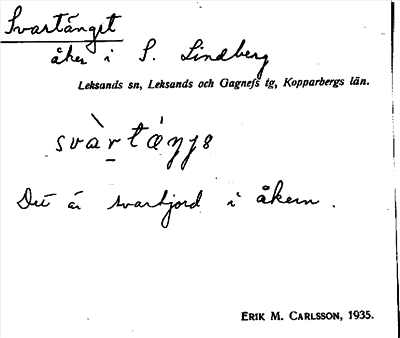 Svartänget
åker i S. Lindberg
Leksands sn, Leksands och Gagnefs tg, Kopparbergs län.
Det är svartjord i åkern.
ERIK M. CARLSSON, 1935.